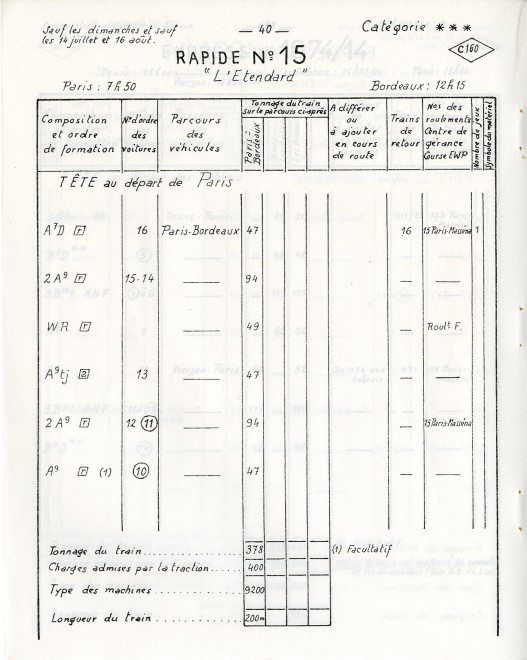 Sauf les dimanches et sauf — 40 — Catégorie ***
les 14 juillet et 16 août.
RAPIDE Nº 15 C160
"L'Etendard"
Paris : 7h50 Bordeaux : 12h15
Composition et ordre de formation
Nºd'ordre des voitures
Parcours des véhicules
Tonnage du train sur le parcours ci-après
Paris-Bordeaux
A différer ou à ajouter en cours de route
Trains de retour
Nos des roulements Centre de gérance Course EWP
Nombre de jeux
Symbole du matériel
TÊTE au départ de Paris
A⁷D r 16 Paris-Bordeaux 47 16 15 Paris-Masséna 1
2A⁹ r 15-14 — 94 — —
WR r — 49 — Roult F.
A⁹tj a 13 — 47 — —
2A⁹ r 12 11 — 94 — 15 Paris-Masséna
A⁹ r (1) 10 — 47 — —
Tonnage du train 378 (1) Facultatif
Charges admises par la traction 400
Type des machines 9200
Longueur du train 200m